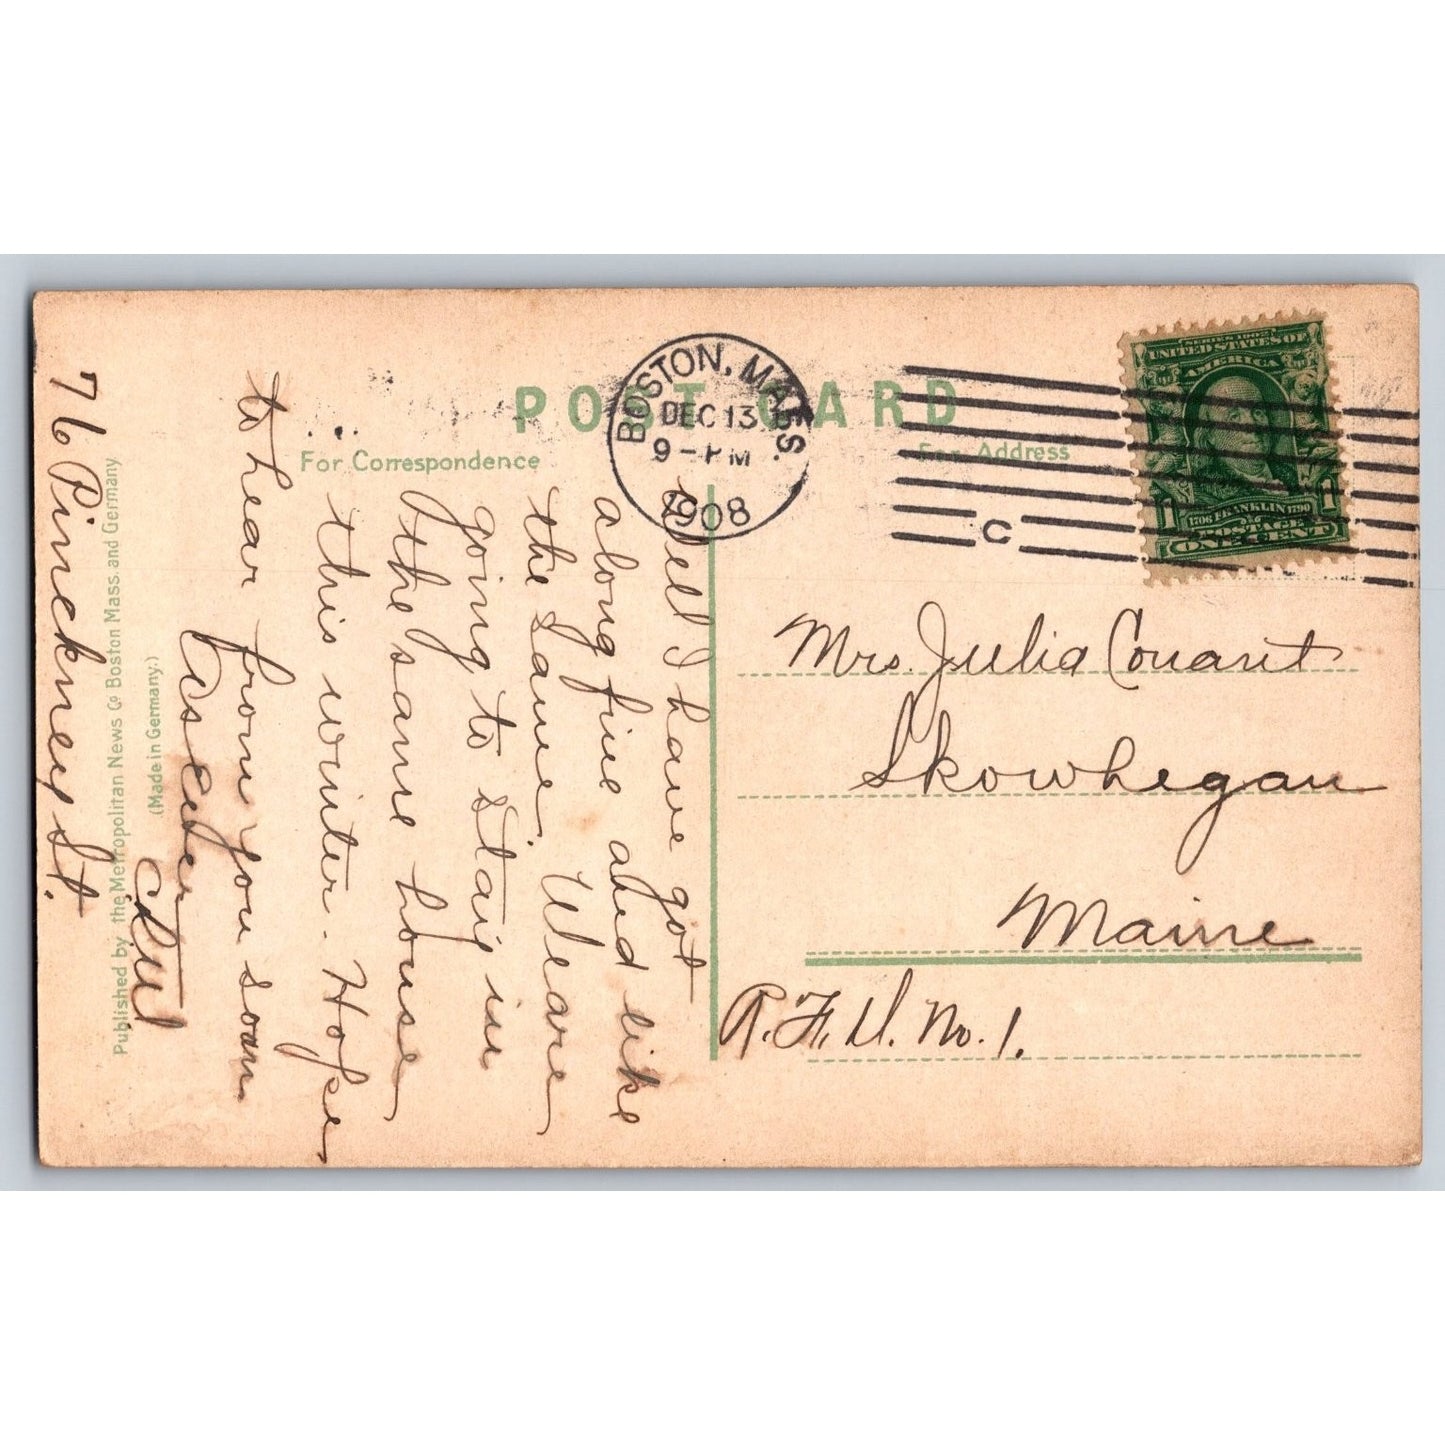 POST CARD
For Correspondence
For Address
BOSTON, MASS.
DEC 13
9 - PM
1908
C
SERIES 1902
UNITED STATES OF
AMERICA
1706 FRANKLIN 1790
POSTAGE
1 1
ONE CENT
Mrs. Julia Conant
Skowhegan
Maine
R.F.D. No. 1.
Well I have got
along fine and like
the same. We are
going to stay in
the same house
this winter. Hope
to hear from you soon
As ever
76 Pinckney St.
Published by the Metropolitan News Co Boston Mass. and Germany
(Made in Germany.)